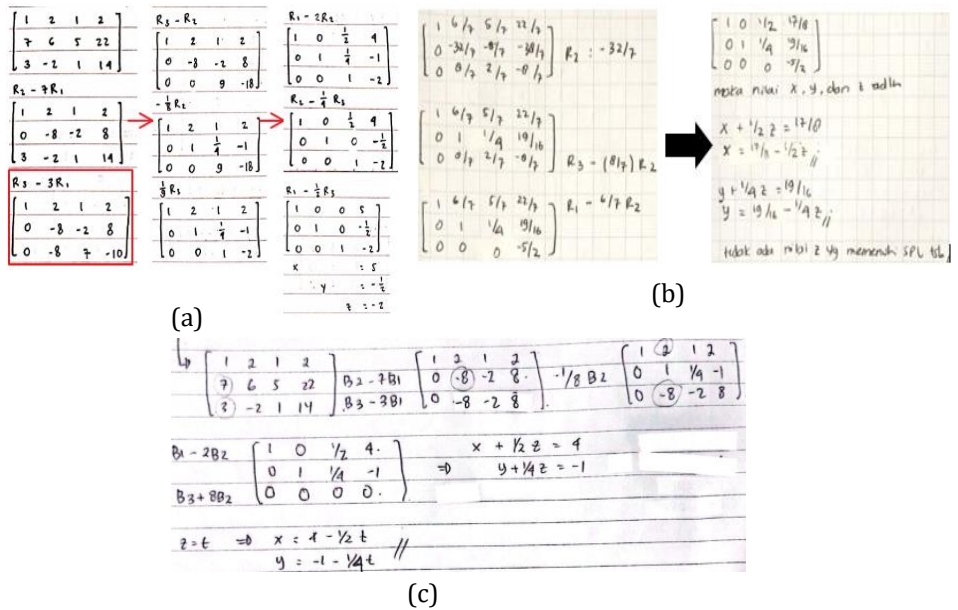 1 2 1 2
7 6 5 22
3 -2 1 14
R2 - 7R1
1 2 1 2
0 -8 -2 8
3 -2 1 14
R3 - 3R1
1 2 1 2
0 -8 -2 8
0 -8 7 -10
R3 - R2
1 2 1 2
0 -8 -2 8
0 0 9 -18
-1/8 R2
1 2 1 2
0 1 1/4 -1
0 0 9 -18
1/9 R3
1 2 1 2
0 1 1/4 -1
0 0 1 -2
R1 - 2R2
1 0 1/2 4
0 1 1/4 -1
0 0 1 -2
R2 - 1/4 R3
1 0 1/2 4
0 1 0 -1/2
0 0 1 -2
R1 - 1/2 R3
1 0 0 5
0 1 0 -1/2
0 0 1 -2
x = 5
y = -1/2
z = -2
(a)
1 6/7 5/7 22/7
0 -32/7 -8/7 -38/7 R2 : -32/7
0 8/7 2/7 -8/7
1 6/7 5/7 22/7
0 1 1/4 19/16
0 8/7 2/7 -8/7 R3 - (8/7) R2
1 6/7 5/7 22/7 R1 - 6/7 R2
0 1 1/4 19/16
0 0 0 -5/2
1 0 1/2 17/8
0 1 1/4 19/16
0 0 0 -5/2
maka nilai x, y, dan z adlh
x + 1/2 z = 17/8
x = 17/8 - 1/2 z //
y + 1/4 z = 19/16
y = 19/16 - 1/4 z //
tidak ada nilai z yg memenuhi SPL tsb
(b)
1 2 1 2
7 6 5 22 B2 - 7B1
3 -2 1 14 B3 - 3B1
1 2 1 2
0 -8 -2 8 -1/8 B2
0 -8 -2 8
1 2 1 2
0 1 1/4 -1
0 -8 -2 8
B1 - 2B2 1 0 1/2 4 x + 1/2 z = 4
0 1 1/4 -1 ⇒ y + 1/4 z = -1
B3 + 8B2 0 0 0 0
z = t ⇒ x = 4 - 1/2 t
y = -1 - 1/4 t //
(c)